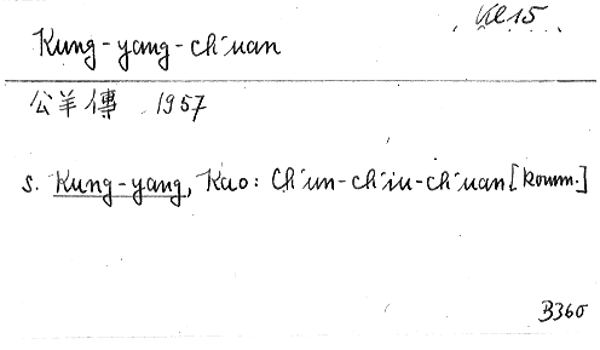 Kl 15
Kung-yang-ch'uan
公羊傳 1957
s. Kung-yang, Kao: Ch'un-ch'iu-ch'uan [Komm.]
B360